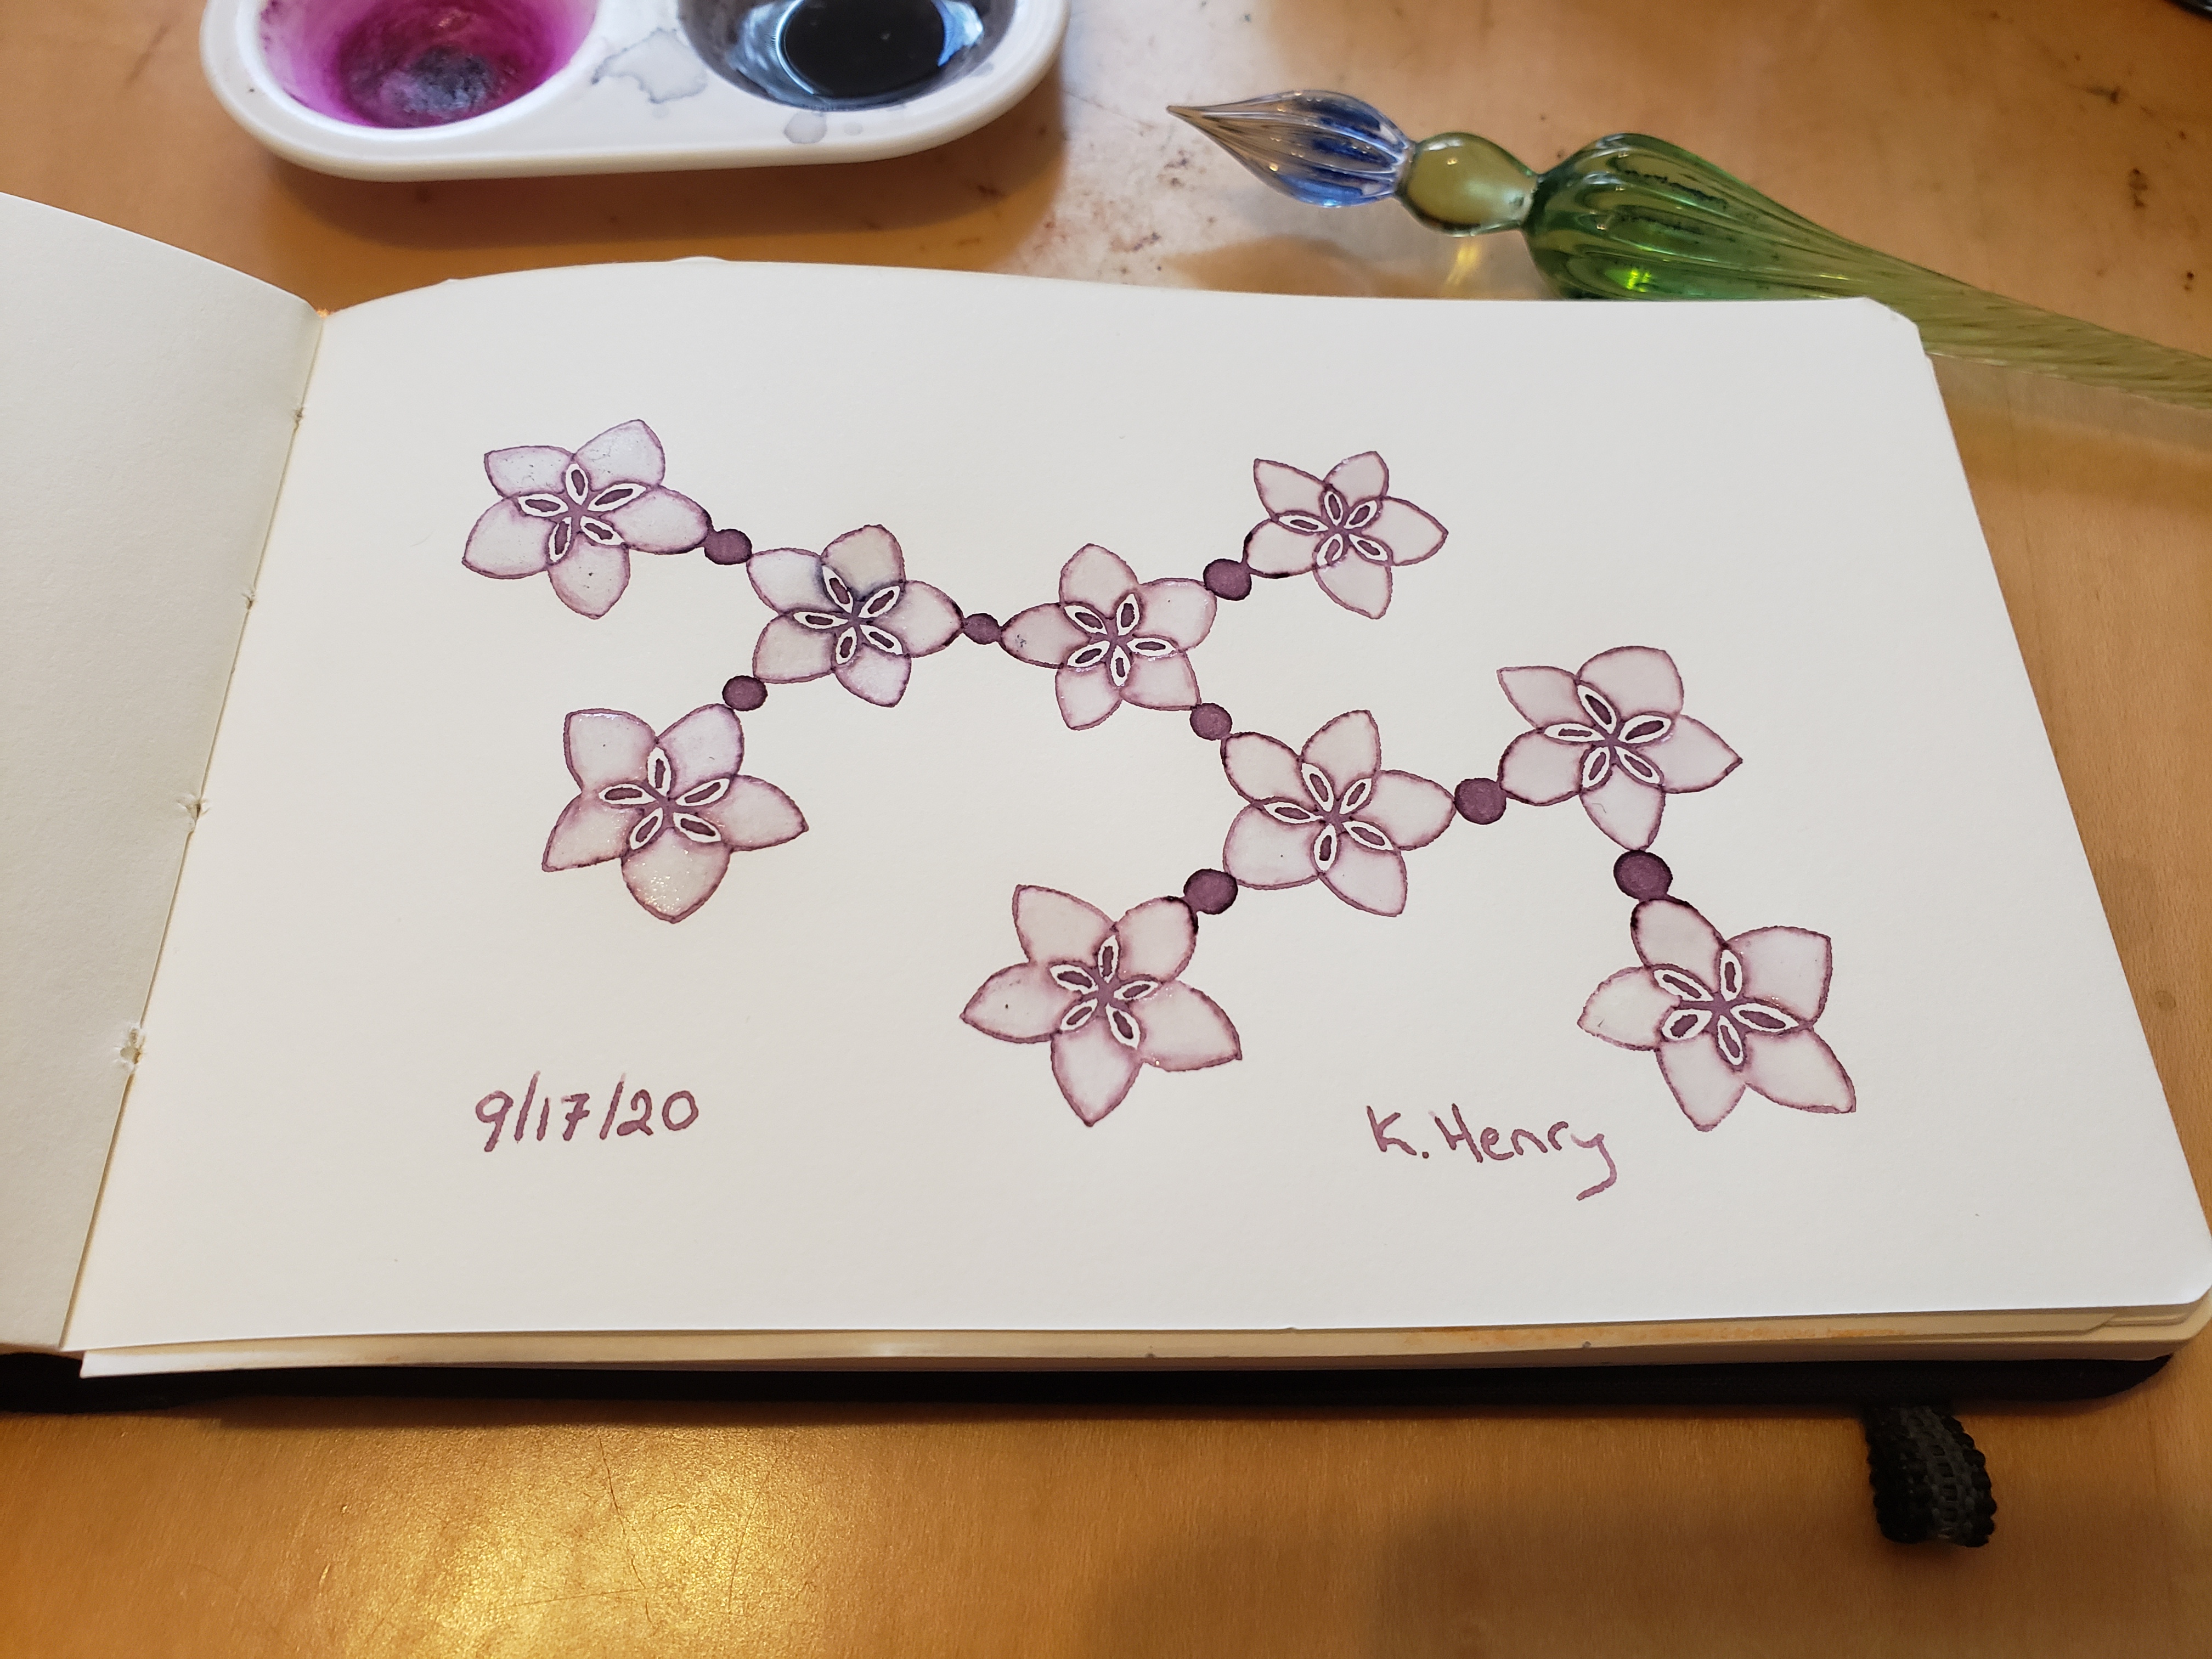 9/17/20
K. Henry